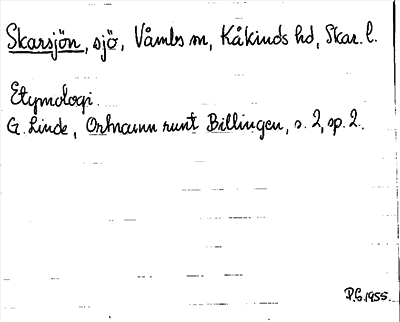 Skarsjön, sjö, Våmbs sn, Kåkinds hd, Skar. l.
Etymologi.
G. Linde, Ortnamn runt Billingen, s. 2, sp. 2.
P.G. 1955.